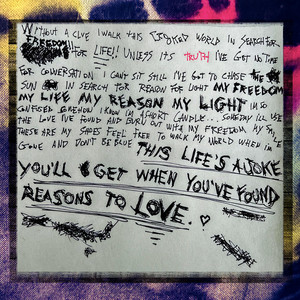 WITHOUT A CLUE I WALK THIS CROOKED WORLD IN SEARCH FOR
FREEDOM!!! FOR LIFE!! UNLESS IT'S TRUTH I'VE GOT NO TIME
FOR CONVERSATION I CAN'T SIT STILL I'VE GOT TO CHASE THE
SUN IN SEARCH FOR REASON FOR LIGHT MY FREEDOM
MY LIFE MY REASON MY LIGHT IM SO
CONFUSED I KNOW IM A SHORT CANDLE... SOMEDAY I'LL USE
THE LOVE I'VE FOUND AND BURN OUT WITH MY FREEDOM
THESE ARE MY SHOES FEEL FREE TO WALK MY WORLD WHEN IM
GONE AND DON'T BE BLUE THIS LIFE'S A JOKE
YOU'LL GET WHEN YOU'VE FOUND
REASONS TO LOVE.